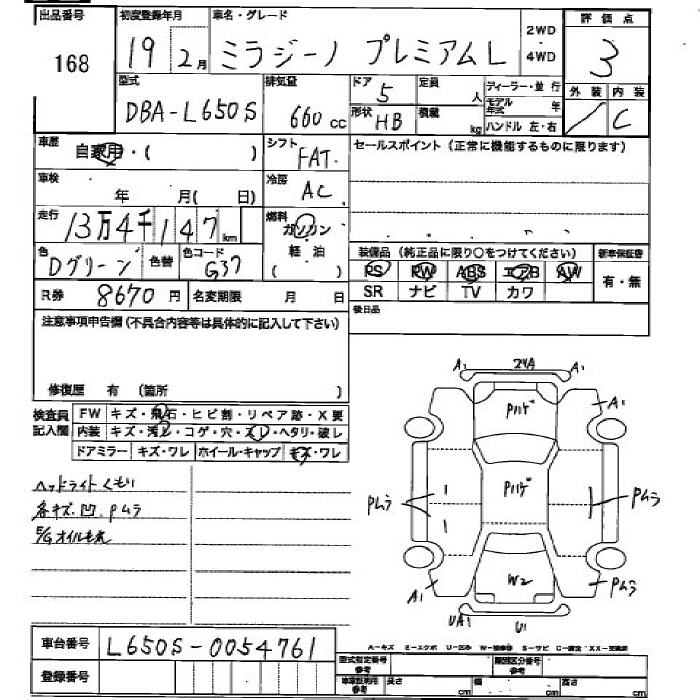 出品番号 初度登録年月 車名・グレード 2WD・4WD 評価点
168 19 2月 ミラジーノ プレミアムL 3
型式 排気量 ドア 5 定員 人 ディーラー・並行 外装 内装
DBA-L650S 660cc 形状 HB 積載 kg モデル年式 年 C
ハンドル 左・右
車歴 自家用・( ) シフト FAT セールスポイント(正常に機能するものに限ります)
車検 年 月(日) 冷房 AC
走行 13万4千147km 燃料 ガソリン 軽油
色 Dグリーン 色替 色コード G37 装備品(純正品に限り○をつけてください) 新車保証書
PS PW ABS エアB AW 有・無
R券 8670円 名変期限 月 日 SR ナビ TV カワ
注意事項申告欄(不具合内容等は具体的に記入して下さい) 後日品
修復歴 有 (箇所 )
検査員記入欄 FW キズ・飛石・ヒビ割・リペア跡・X要
内装 キズ・汚レ・コゲ・穴・スレ・ヘタリ・破レ
ドアミラー キズ・ワレ ホイール・キャップ キズ・ワレ
ヘッドライトくもり
各キズ.凹.Pムラ
E/Gオイルもれ
A1 24A A1
Pハゲ A1
Pハゲ
Pムラ Pムラ
A1 W2 Pムラ
UA1 U1
車台番号 L650S-0054761
A-キズ E-エクボ U-凹み S-サビ
登録番号 型式指定番号 類別区分番号
参考 車庫証明用 参考 長さ cm 幅 cm 高さ cm